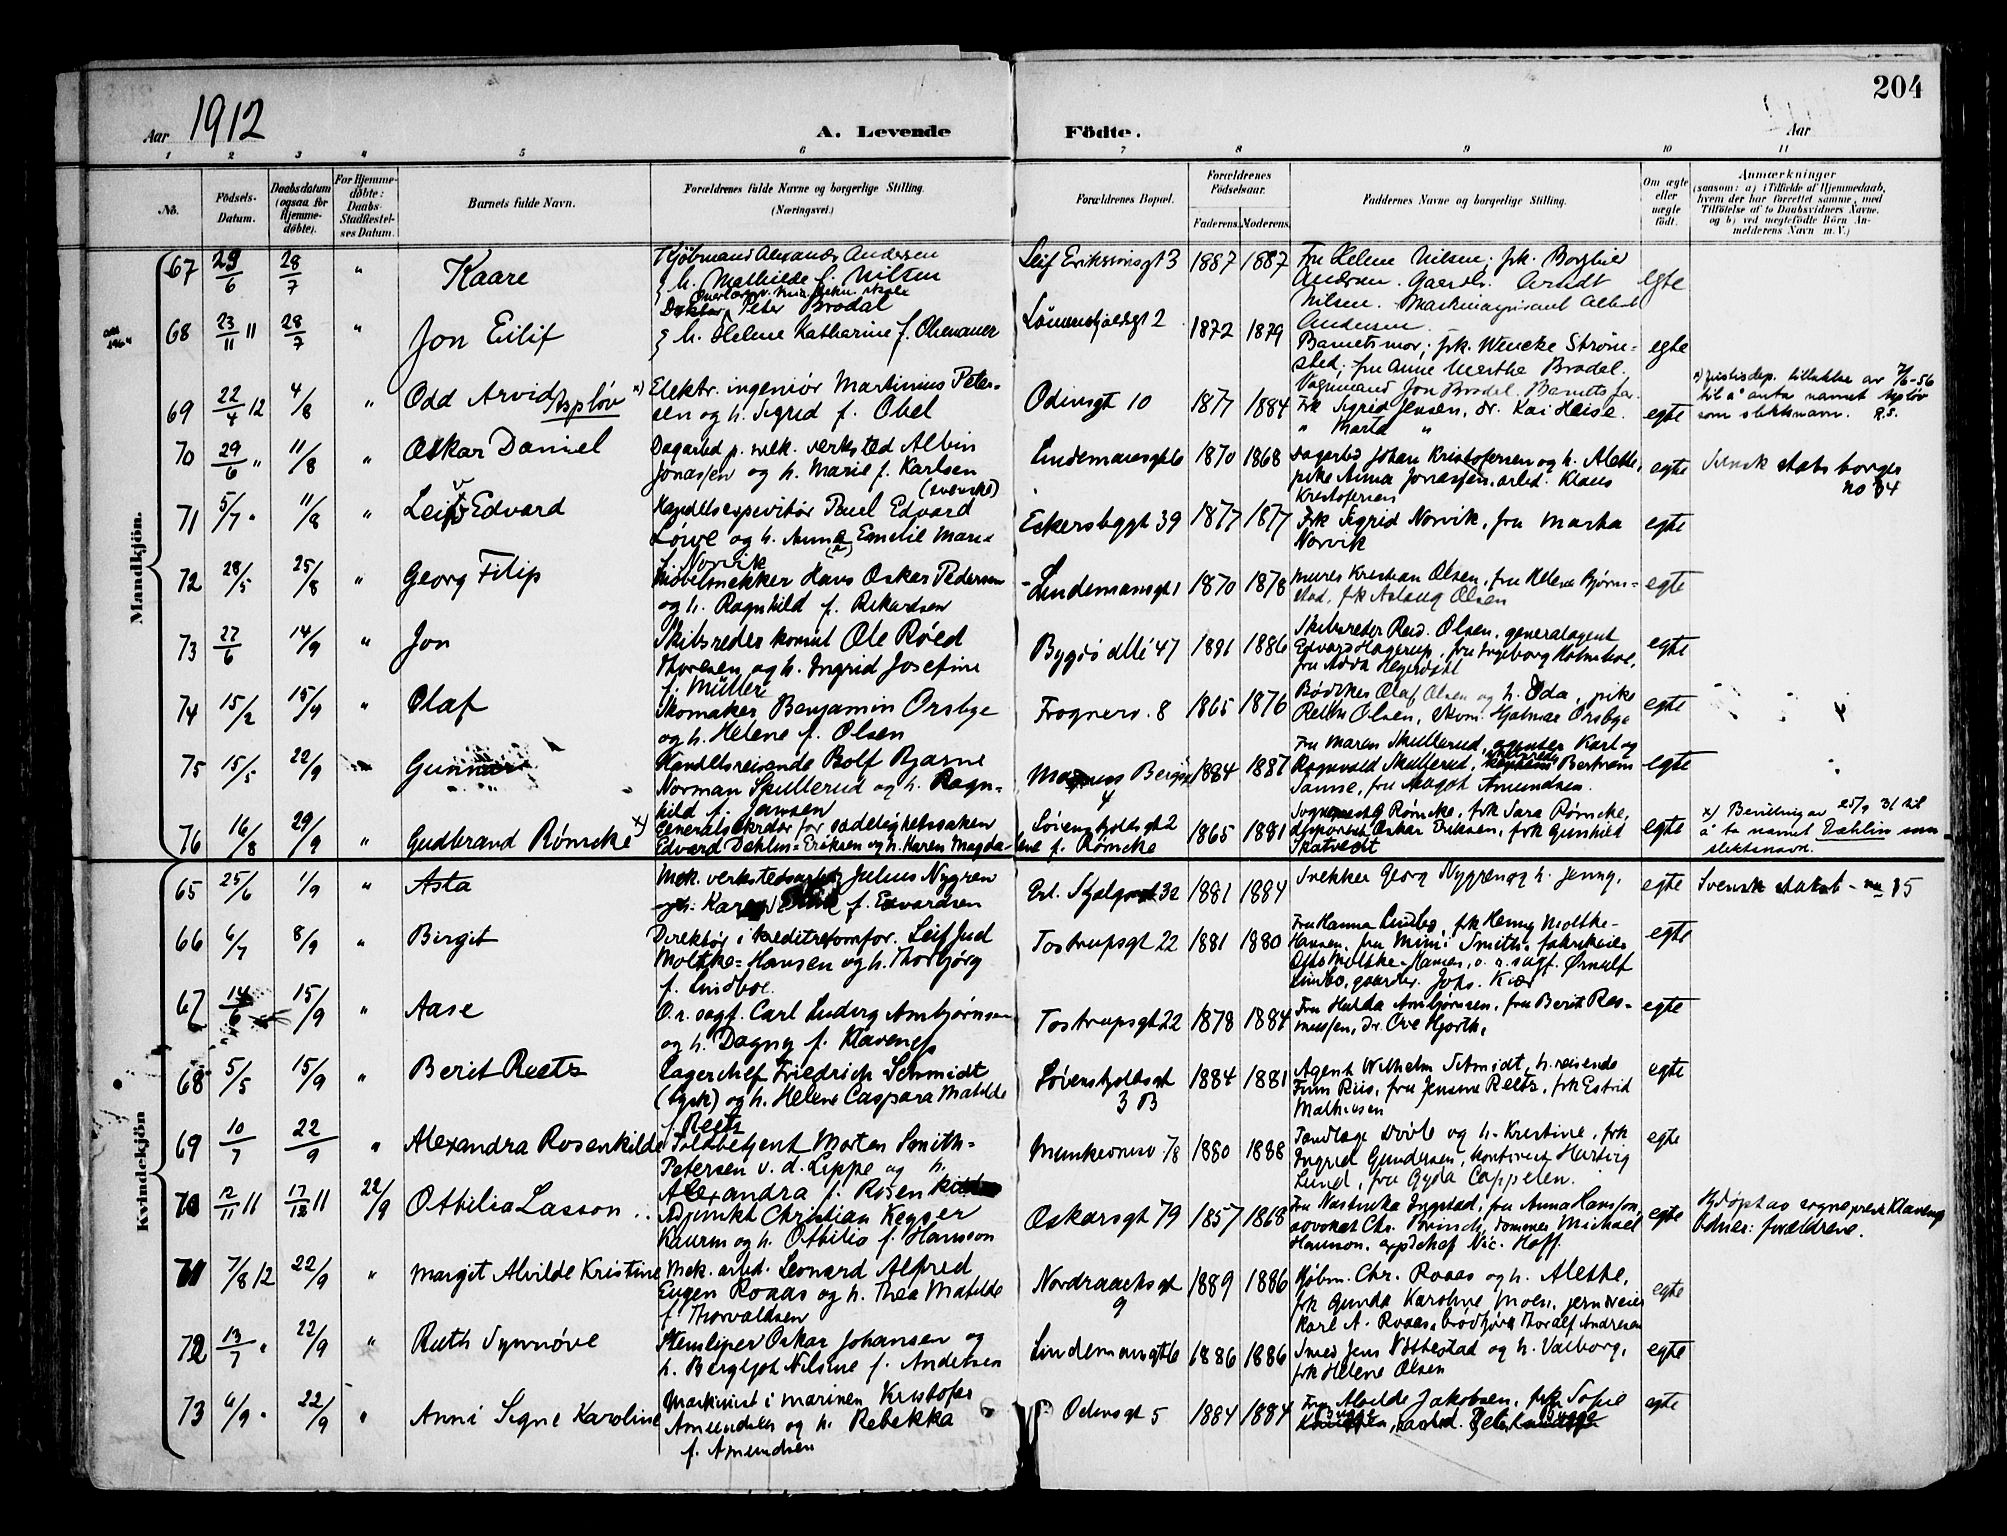 204
Aar 1912
A. Levende
Födte.
Aar
1 2 3 4 5 6 7 8 9 10 11
No.
Födsels-Datum.
Daabsdatum (ogsaa for Hjemme-döbte).
For Hjemme-döbte: Daabs-Stadfæstel-ses Datum.
Barnets fulde Navn.
Forældrenes fulde Navne og borgerlige Stilling.
(Næringsvei.)
Forældrenes Bopæl.
Forældrenes Födselsaar.
Faderens. Moderens.
Faddernes Navne og borgerlige Stilling.
Om ægte eller uægte födt.
Anmærkninger
(saasom: a) i Tilfælde af Hjemmedaab, hvem der har forrettet samme, med Tilföielse af to Daabsvidners Navne. og b) ved uægtefödte Börn An-melderens Navn m. V.)
Mandkjön.
67 29/6 28/7 " Kaare
Kjøbmand Alexander Andersen
& h. Mathilde f. Nilsen
Leif Erikssønsgt 3 1887 1887
Fru Helene Nilsen; frk. Borghild
Andersen. Arndt
Nilsen. Albert
Andersen.
egte
68 23/11 11 28/7 " Jon Eilif
Doktor Peter Brodal
& h. Helene Katharine f. Obenauer
Løvenskjoldsgt 2 1872 1879
Barnets mor; frk. Wencke Strøm-
sted; fru Anne Merthe Brodal.
Vognmand Jon Brodal. Barnets far
egte
69 22/4 12 4/8 " Odd Arvid Aspløv x)
Elektr. ingeniør Martinius Peter-
sen og h. Sigrid f. Obel
Odinsgt 10 1877 1884
Frk Sigrid Jensen, dr. Kai Heise.
" Marta "
egte
x) Justisdep. tillatelse av 7/6-56
til å anta navnet Aspløv
som slektsnavn. R.S.
70 29/6 " 11/8 " Oskar Daniel
Dagarbd p. mek. verksted Albin
Jonassen og h. Marie f. Karlsen
(svenske)
Lindemansgt 6 1870 1868
Dagarbd Johan Kristofersen og h. Alette,
pike Anna Jonassen, arbd. Klaus
Kristofersen
egte
Svensk statsborger
no 84
71 5/7 " 11/8 " Leif Edvard
Handelsexpeditør Paul Edvard
Løwe og h. Anna Emilie Marie
f. Norvik
Eckersbggt 39 1877 1877
Frk Sigrid Norvik, fru Marta
Norvik
egte
72 28/5 25/8 " Georg Filip
Møbelsnekker Hans Oskar Pedersen
og h. Ragnhild f. Rikardsen
Lindemansgt 1 1870 1878
Murer Kristian Olsen, fru Helene Bjørn-
stad, frk Aslaug Olsen
egte
73 27/6 14/9 " Jon
Skibsreder Ole Røed
Thoresen og h. Ingrid Josefine
f. Müller
Bygdø alle 47 1881 1886
Skibsreder Olsen, generalagent
Edvard Hagerup, fru Ingeborg Holmboe,
fru
egte
74 15/2 15/9 " Olaf
Skomaker Benjamin Ørsbye
og h. Helene f. Olsen
Frognerv. 8 1865 1876
Bødtker Olaf Olsen og h. Oda, pike
Olsen, skom. Hjalmar Ørsbye
egte
75 15/5 22/9 Gunnar
Handelsreisende Rolf Bjarne
Norman Skullerud og h. Ragn-
hild f. Jansen
Magnus Bergsgt 4 1884 1887
Fru Maren Skullerud, agenter Karl og
Ragnvald Skullerud, Bertram
Sanne, fru Margot Amundsen.
egte
76 16/8 29/9 " Gudbrand Rømcke x)
Generalsekretær for sædelighetssaken
Edvard Dahlin-Eriksen og h. Karen Magda-
lene f. Rømcke
Løvenskjoldsgt 2 1865 1881
Sogneprest Rømcke, frk Sara Rømcke,
Oskar Eriksen, frk Gunhild
Skatvedt
egte
x) Bevilling av 25/9 31 til
å ta navnet Dahlin som
slektsnavn.
Kvindekjön
65 25/6 1/9 " Asta
Mek. verkstedsarbd Julius Nygren
og h. f. Edvardsen
Erl. Skjalgssøgt 32 1881 1884
Snekker Georg Nygren og h. Jenny.
egte
Svensk statsb - no 85
66 6/7 8/9 " Birgit
Direktør i Kreditreformfor. Leif Juel
Moltke-Hansen og h. Thorbjørg
f. Lindboe.
Tostrupsgt 22 1881 1880
Fru Hanna Lindbo, frk Henny Moltke-
Hansen, fru Mimi Smith, fabrikeier
Otto Moltke-Hansen, o. r. sagf. Ørnulf
Lindbo, gaardbr. Johs. Kiær
egte
67 14/6 15/9 " Aase
O.r. sagf. Carl Ludvig Arnbjørnsen
og h. Dagny f. Klaveness
Tostrupsgt 22 1878 1884
Fru Hulda Arnbjørnsen, fru Berit Ras-
mussen, dr. Ove Hjorth.
egte
68 5/5 15/9 " Berit Reetz
Lagerchef Friedrich Schmidt
(tysk) og h. Helene Caspara Matilde
f. Reetz
Løvenskjoldsgt
3 B 1884 1881
Agent Wilhelm Schmidt, h. reisende
Finn Riis, fru Jensine Reetz, frk Estrid
Mathiesen
egte
69 10/7 22/9 " Alexandra Rosenkilde
Toldbetjent Morten Smith-
Petersen v. d. Lippe og h.
Alexandra f. Rosenkilde
Munkedamsv 78 1880 1888
Tandlæge Dövle og h. Kristine, frk
Ingrid Gundersen, kontorist Hartvig
Lund, fru Gyda Cappelen.
egte
70 12/11 11 17/12 11 22/9 Othilia Lasson
Adjunkt Christian Keyser
Kaurin og h. Othilia f. Hansson
Oskarsgt 79 1857 1868
Fru Nastinka Ingstad, fru Anna Hansson,
advokat Chr. dommer Michael
Hansson, expd.chef Nic. Hoff.
egte
Hj.døpt av sogneprest Klaveness
Vidner: forældrene.
71 7/8 12 22/9 " Margit Alvilde Kristine
Mek. arbd. Leonard Alfred
Eugen Roaas og h. Thea Matilde
f. Thorvaldsen
Nordraachsgt
9 1889 1886
Kjøbm. Chr. Roaas og h. Alette,
frk Gunda Karoline Moen, jerndreier
Karl A. Roaas, brødkjører Thoralf Andresen
egte
72 13/7 " 22/9 " Ruth Synnøve
Stensliper Oskar Johansen og
h. Bergljot Nilsine f. Andersen
Lindemansgt 6 1886 1886
Smed Jens Nøttestad og h. Valborg,
frk Helene Olsen
egte
73 6/9 " 22/9 " Anni Signe Karoline
Maskinist i marinen Kristofer
Amundsen og h. Rebekka
f. Amundsen
Odinsgt 5 1884 1884
Fru Alvilde Jakobsen, frk Sofie
egte